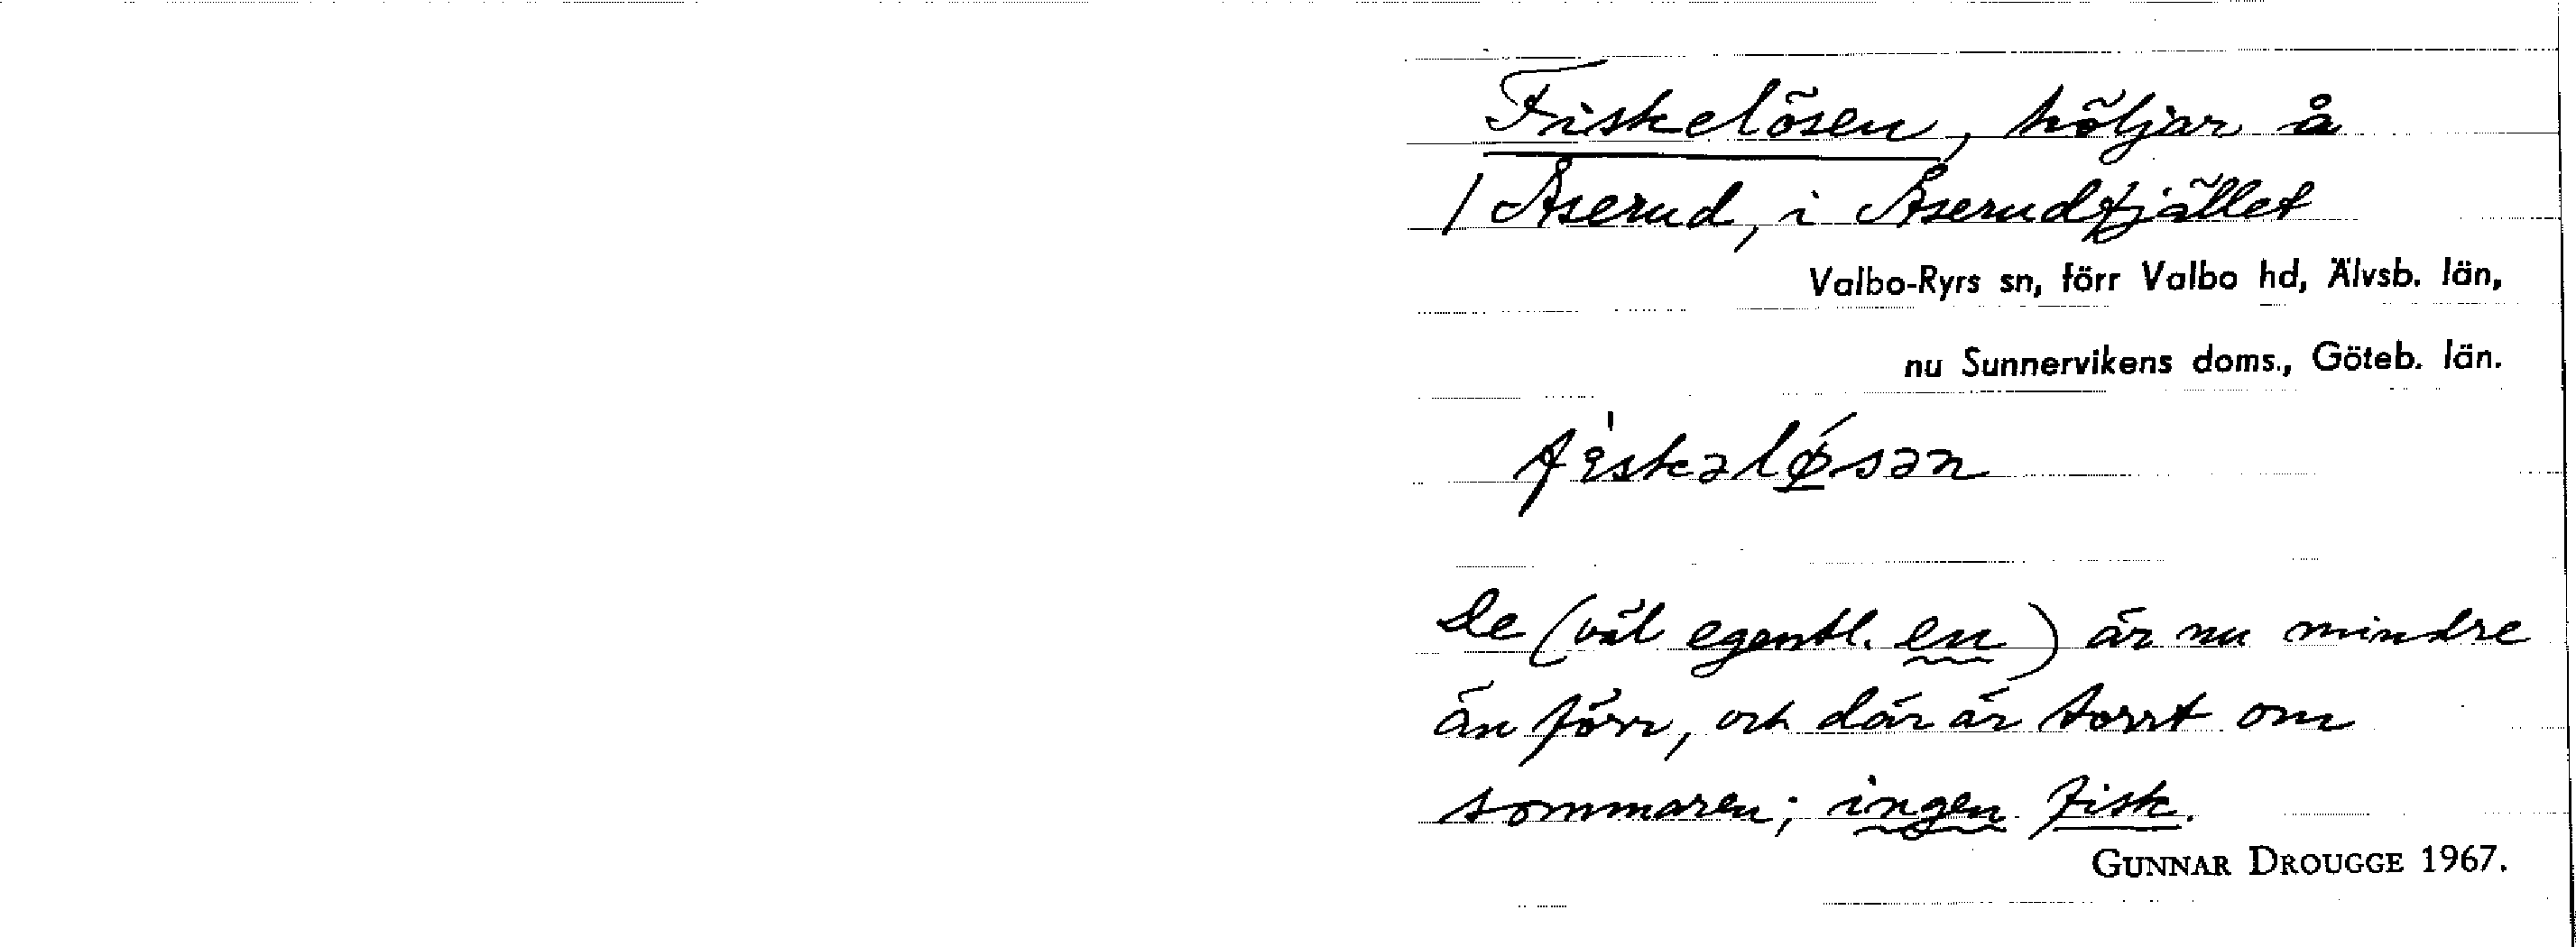 Fiskelösen, höljar å
/ Åserud, i Åserudfjället
Valbo-Ryrs sn, förr Valbo hd, Älvsb. län,
nu Sunnervikens doms., Göteb. län.
fiskəløsən
De (väl egentl. en) är nu mindre
än förr, och där är torrt om
sommaren; ingen fisk.
GUNNAR DROUGGE 1967.